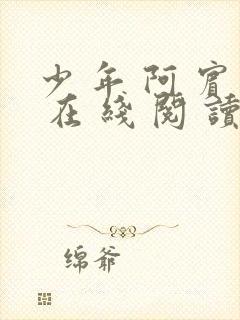 少年阿賓
在綫閱讀
绵爷